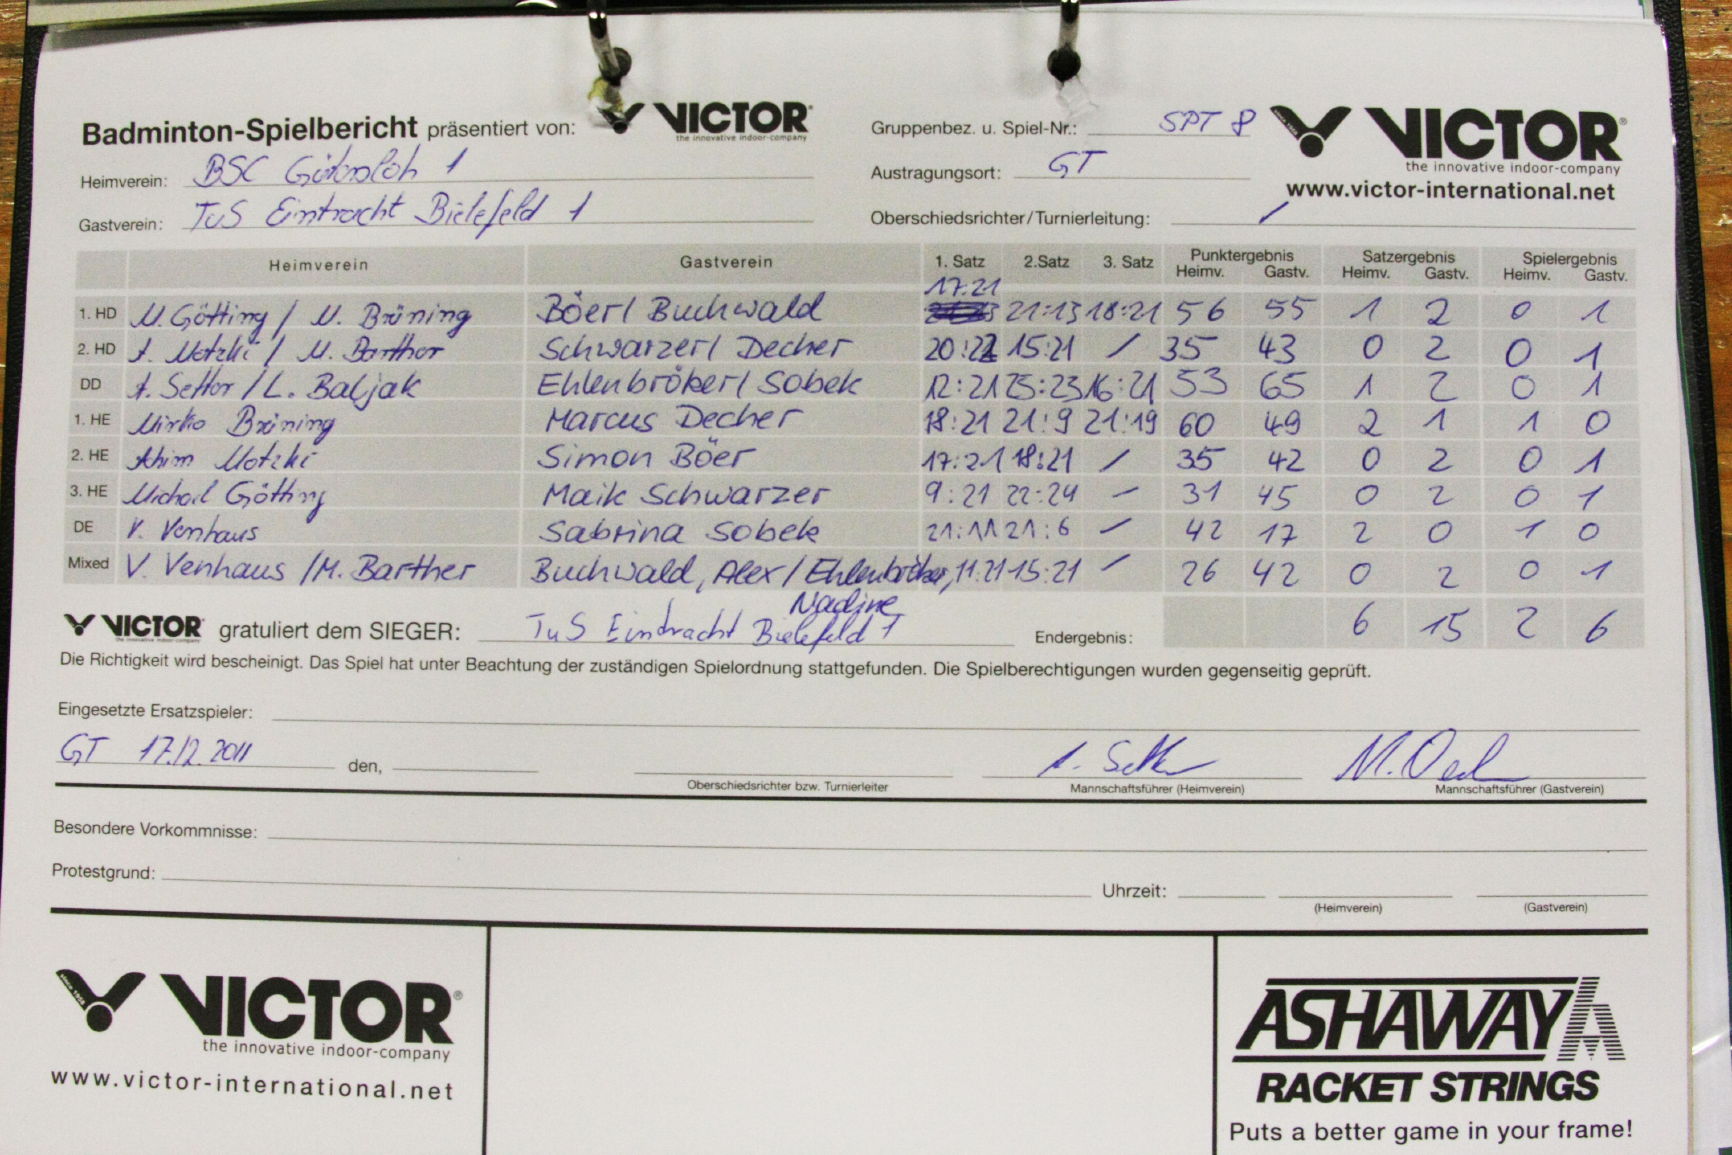 Badminton-Spielbericht präsentiert von: VICTOR the innovative indoor-company
Gruppenbez. u. Spiel-Nr.: SPT 8
since 1968 VICTOR the innovative indoor-company
www.victor-international.net
Heimverein: BSC Gütersloh 1
Austragungsort: GT
Gastverein: TuS Eintracht Bielefeld 1
Oberschiedsrichter/Turnierleitung: /
Heimverein Gastverein 1. Satz 2.Satz 3. Satz Punktergebnis Heimv. Gastv. Satzergebnis Heimv. Gastv. Spielergebnis Heimv. Gastv.
1. HD M. Götting / M. Brüning Böer / Buchwald 17:21 21:13 18:21 56 55 1 2 0 1
2. HD A. Motzki / M. Barther Schwarzer / Decher 20:22 15:21 / 35 43 0 2 0 1
DD A. Settor / L. Baljak Ehlenbröker / Sobek 12:21 25:23 16:21 53 65 1 2 0 1
1. HE Mirko Brüning Marcus Decher 18:21 21:9 21:19 60 49 2 1 1 0
2. HE Ahim Motzki Simon Böer 17:21 18:21 / 35 42 0 2 0 1
3. HE Michael Götting Maik Schwarzer 9:21 22:24 – 31 45 0 2 0 1
DE V. Venhaus Sabrina Sobek 21:11 21:6 / 42 17 2 0 1 0
Mixed V. Venhaus / M. Barther Buchwald, Alex / Ehlenbröker, Nadine 11:21 15:21 / 26 42 0 2 0 1
VICTOR gratuliert dem SIEGER: TuS Eintracht Bielefeld 1 Endergebnis: 6 15 2 6
Die Richtigkeit wird bescheinigt. Das Spiel hat unter Beachtung der zuständigen Spielordnung stattgefunden. Die Spielberechtigungen wurden gegenseitig geprüft.
Eingesetzte Ersatzspieler:
GT 17.12.2011 den,
Oberschiedsrichter bzw. Turnierleiter Mannschaftsführer (Heimverein) Mannschaftsführer (Gastverein)
Besondere Vorkommnisse:
Protestgrund: Uhrzeit:
(Heimverein) (Gastverein)
since 1968 VICTOR
the innovative indoor-company
www.victor-international.net
ASHAWAY
RACKET STRINGS
Puts a better game in your frame!